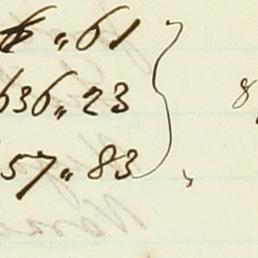 6 " 61
636 " 23
57 " 83
8